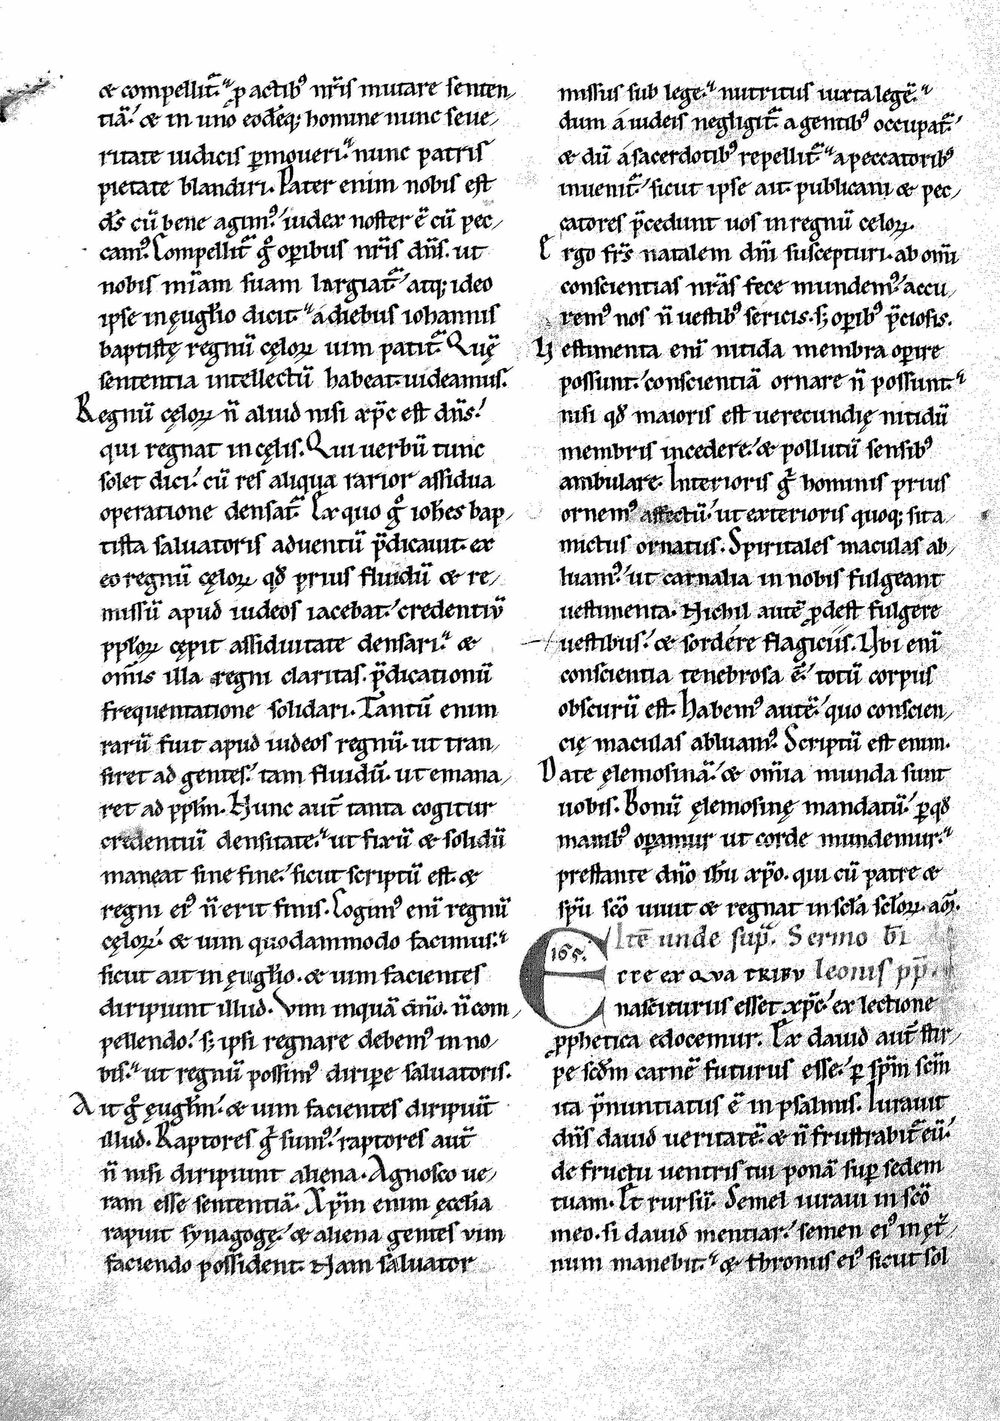 & compellit᷑. p̲ actibꝰ nr̅is mutare senten
tiā. & in uno eodēq; homine nunc seue
ritate iudicis ꝑmoueri. nunc patris
pietate blandiri. Pater enim nobis est
ds̅ cū bene agimꝰ. iudex noster ē cū pec
camꝰ. Compellit᷑ gͦ oꝑibus nr̅is dn̅s. ut
nobis mi̅am suam largiat᷑. atq; ideo
ipse in ęuglio dicit. a diebus iohannis
baptistę regnū cęloꝝ uim patit᷑. Quę
sententia intellectū habeat. uideamus.
Regnū cęloꝝ n̅ aliud nisi xp̅c est dn̅s.
qui regnat in cęlis. Qui uerbū tunc
solet dici. cū res aliqua rarior assidua
operatione densat᷑. Ex quo gͦ ioh̅es bap
tista saluatoris aduentū p̅dicauit. ex
eo regnū cęloꝝ qd̅ prius fluidū & re
missū apud iudeos iacebat. credentiū
pp̅loꝝ cępit assiduitate densari. &
om̅is illa regni claritas. p̅dicationū
frequentatione solidari. Tantū enim
rarū fuit apud iudeos regnū. ut tran
siret ad gentes. tam fluidū. ut emana
ret ad pp̅lm. Hunc aut̅ tanta cogitur
credentiū densitate. ut fixū & solidū
maneat sine fine. sicut scriptū est. &
regni eiꝰ n̅ erit finis. Cogimꝰ eni̅ regnū
cęloꝝ. & uim quodammodo facimus.
sicut ait in ęuglio. & uim facientes
diripiunt illud. Vim inquā om̅s. n̅ com
pellendo. s; ipsi regnare debemꝰ in no
bis. ut regnū possimꝰ diriꝑe saluatoris.
Ait gͦ ęuglm. & uim facientes diripiūt
illud. Raptores gͦ sumꝰ. raptores aut̅
n̅ nisi diripiunt aliena. Agnosco ue
ram esse sententiā. Xp̅m enim ęcclia
rapuit synagogę. & aliena gentes uim
faciendo possident. Nam saluator
missus sub lege. nutritus iuxta legē.
dum a iudeis negligit᷑. a gentibꝰ occupat᷑.
& dū a sacerdotibꝰ repellit᷑. a peccatoribꝰ
inuenit᷑. sicut ipse ait. publicani & pec
catores p̅cedunt uos in regnū celoꝝ.
Ergo frs̅ natalem dn̅i suscepturi. ab om̅i
conscientias nr̅as fece mundemꝰ. accu
remꝰ nos n̅ uestibꝰ sericis. s; oꝑibꝰ p̅ciosis.
Vestimenta eni̅ nitida membra oꝑire
possunt. conscientiā ornare n̅ possunt.
nisi qd̅ maioris est uerecundię nitidū
membris incedere. & pollutū sensibꝰ
ambulare. Interioris gͦ hominis prius
ornemꝰ affectū. ut exterioris quoq; sit a
mictus ornatus. Spiritales maculas ab
luamꝰ. ut carnalia in nobis fulgeant
uestimenta. Nichil autē ꝓdest fulgere
uestibus. & sordere flagiciis. Vbi eni̅
conscientia tenebrosa ē. totū corpus
obscurū est. Habemꝰ autē. quo conscien
cię maculas abluamꝰ. Scriptū est enim.
Date ęlemosinā. & om̅ia munda sunt
uobis. Bonū ęlemosinę mandatū. ꝑ qd̅
manibꝰ oꝑamur ut corde mundemur.
prestante dn̅o ih̅u xp̅o. qui cū patre &
spū sc̅o uiuit & regnat in scl̅a scl̅oꝝ. am̅.
Itē unde sup̅. Sermo bt̅i
165.
Erte ex qva tribv leonis pp̅.
nasciturus esset xp̅c. ex lectione
ꝓphetica edocemur. Ex dauid aut̅ stir
pe scdm carnē futurus esse. ꝑ spm̅ scm̅
ita p̅nuntiatus ē in psalmis. Iurauit
dn̅s dauid ueritatē. & n̅ frustrabit᷑ eū.
de fructu uentris tui ponā suꝑ sedem
tuam. Et rursū. Semel iuraui in sc̅o
meo. si dauid mentiar. semen eiꝰ in ęt̅
num manebit. & thronus eiꝰ sicut sol